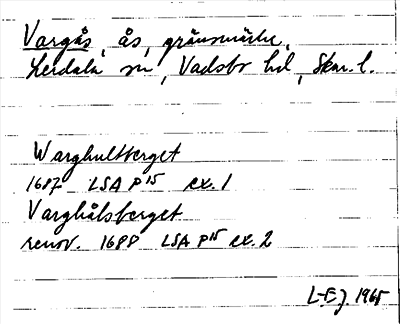 Vargås, ås, gränsmärke,
Lerdala sn, Vadsbo hd, Skar. l.
Warghultberget
1687 LSA P15 ex. 1
Varghålsberget
renov. 1688 LSA P15 ex. 2
L-EJ 1965